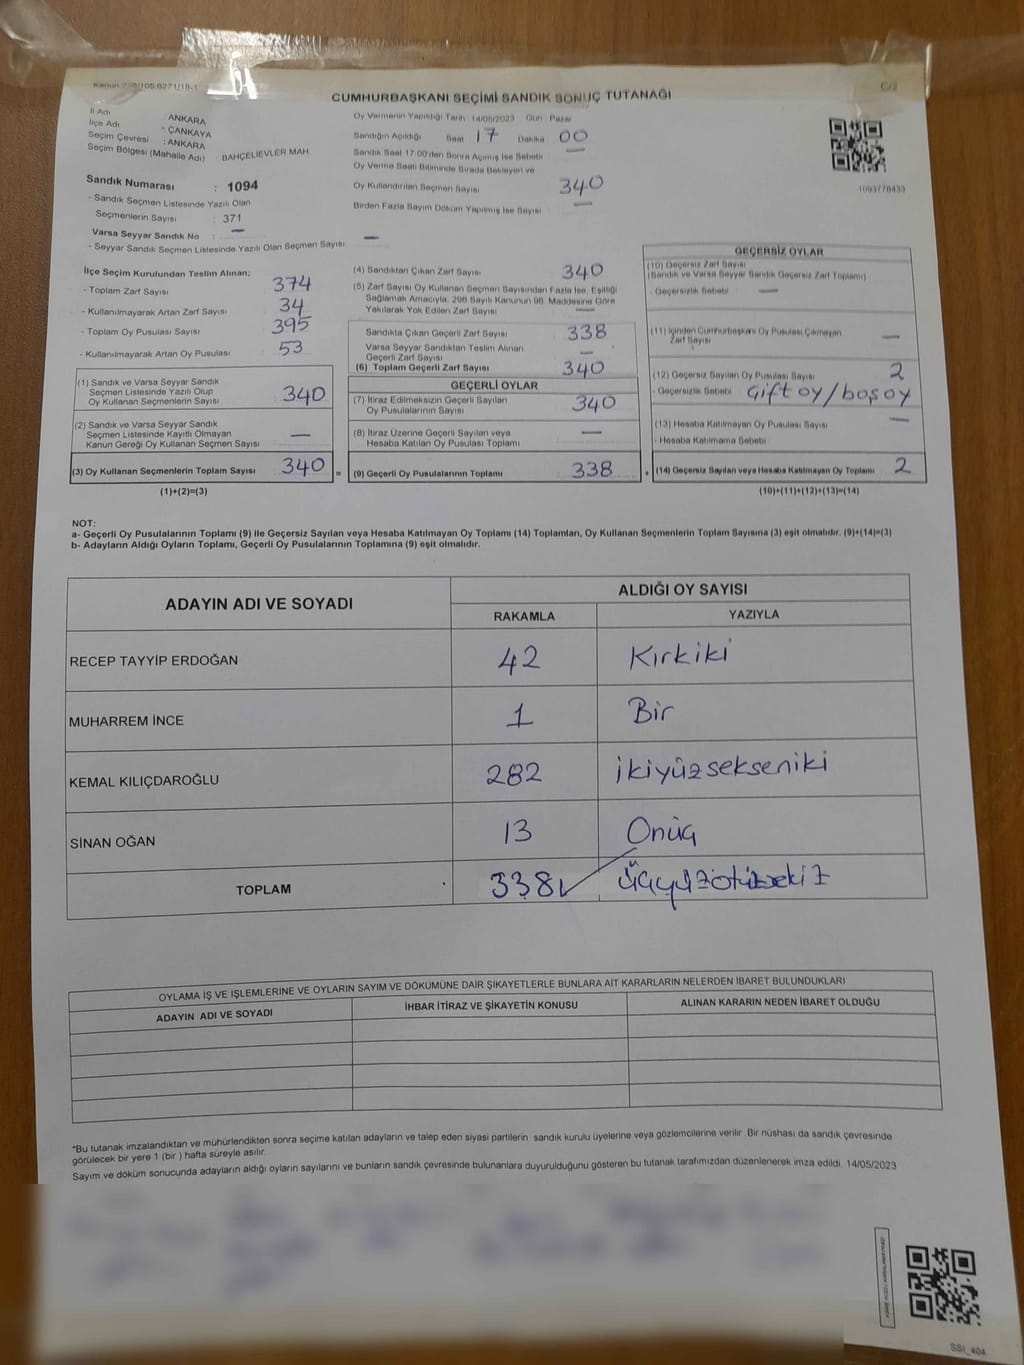 CUMHURBAŞKANI SEÇİMİ SANDIK SONUÇ TUTANAĞI
C/2
İl Adı ANKARA
İlçe Adı - ÇANKAYA
Seçim Çevresi : ANKARA
Seçim Bölgesi (Mahalle Adı) BAHÇELİEVLER MAH.
Sandık Numarası : 1094
- Sandık Seçmen Listesinde Yazılı Olan
Seçmenlerin Sayısı : 371
Varsa Seyyar Sandık No : —
- Seyyar Sandık Seçmen Listesinde Yazılı Olan Seçmen Sayısı: —
Oy Vermenin Yapıldığı Tarih: 14/05/2023 Gün : Pazar
Sandığın Açıldığı Saat 17 Dakika 00
Sandık Saat 17:00'den Sonra Açılmış İse Sebebi —
Oy Verme Saati Bitiminde Sırada Bekleyen ve
Oy Kullandırılan Seçmen Sayısı 340
Birden Fazla Sayım Döküm Yapılmış İse Sayısı —
1093778433
İlçe Seçim Kurulundan Teslim Alınan;
- Toplam Zarf Sayısı 374
- Kullanılmayarak Artan Zarf Sayısı 34
- Toplam Oy Pusulası Sayısı 395
- Kullanılmayarak Artan Oy Pusulası 53
(1) Sandık ve Varsa Seyyar Sandık
Seçmen Listesinde Yazılı Olup
Oy Kullanan Seçmenlerin Sayısı 340
(2) Sandık ve Varsa Seyyar Sandık
Seçmen Listesinde Kayıtlı Olmayan
Kanun Gereği Oy Kullanan Seçmen Sayısı —
(3) Oy Kullanan Seçmenlerin Toplam Sayısı 340 =
(1)+(2)=(3)
(4) Sandıktan Çıkan Zarf Sayısı 340
(5) Zarf Sayısı Oy Kullanan Seçmen Sayısından Fazla İse, Eşitliği
Sağlamak Amacıyla, 298 Sayılı Kanunun 98. Maddesine Göre
Yakılarak Yok Edilen Zarf Sayısı —
Sandıkta Çıkan Geçerli Zarf Sayısı 338
Varsa Seyyar Sandıktan Teslim Alınan
Geçerli Zarf Sayısı —
(6) Toplam Geçerli Zarf Sayısı 340
GEÇERLİ OYLAR
(7) İtiraz Edilmeksizin Geçerli Sayılan
Oy Pusulalarının Sayısı 340
(8) İtiraz Üzerine Geçerli Sayılan veya
Hesaba Katılan Oy Pusulası Toplamı —
(9) Geçerli Oy Pusulalarının Toplamı 338 +
GEÇERSİZ OYLAR
(10) Geçersiz Zarf Sayısı
(Sandık ve Varsa Seyyar Sandık Geçersiz Zarf Toplamı)
- Geçersizlik Sebebi —
(11) İçinden Cumhurbaşkanı Oy Pusulası Çıkmayan
Zarf Sayısı —
(12) Geçersiz Sayılan Oy Pusulası Sayısı 2
- Geçersizlik Sebebi Çift oy/boş oy
(13) Hesaba Katılmayan Oy Pusulası Sayısı —
- Hesaba Katılmama Sebebi
(14) Geçersiz Sayılan veya Hesaba Katılmayan Oy Toplamı 2
(10)+(11)+(12)+(13)=(14)
NOT:
a- Geçerli Oy Pusulalarının Toplamı (9) ile Geçersiz Sayılan veya Hesaba Katılmayan Oy Toplamı (14) Toplamları, Oy Kullanan Seçmenlerin Toplam Sayısına (3) eşit olmalıdır. (9)+(14)=(3)
b- Adayların Aldığı Oyların Toplamı, Geçerli Oy Pusulalarının Toplamına (9) eşit olmalıdır.
ADAYIN ADI VE SOYADI
ALDIĞI OY SAYISI
RAKAMLA YAZIYLA
RECEP TAYYİP ERDOĞAN 42 Kırkiki
MUHARREM İNCE 1 Bir
KEMAL KILIÇDAROĞLU 282 ikiyüzsekseniki
SİNAN OĞAN 13 Onüç
TOPLAM 338 üçyüzotuzsekiz
OYLAMA İŞ VE İŞLEMLERİNE VE OYLARIN SAYIM VE DÖKÜMÜNE DAİR ŞİKAYETLERLE BUNLARA AİT KARARLARIN NELERDEN İBARET BULUNDUKLARI
ADAYIN ADI VE SOYADI İHBAR İTİRAZ VE ŞİKAYETİN KONUSU ALINAN KARARIN NEDEN İBARET OLDUĞU
*Bu tutanak imzalandıktan ve mühürlendikten sonra seçime katılan adayların ve talep eden siyasi partilerin sandık kurulu üyelerine veya gözlemcilerine verilir. Bir nüshası da sandık çevresinde
görülecek bir yere 1 (bir ) hafta süreyle asılır.
Sayım ve döküm sonucunda adayların aldığı oyların sayılarını ve bunların sandık çevresinde bulunanlara duyurulduğunu gösteren bu tutanak tarafımızdan düzenlenerek imza edildi. 14/05/2023
SSI_404